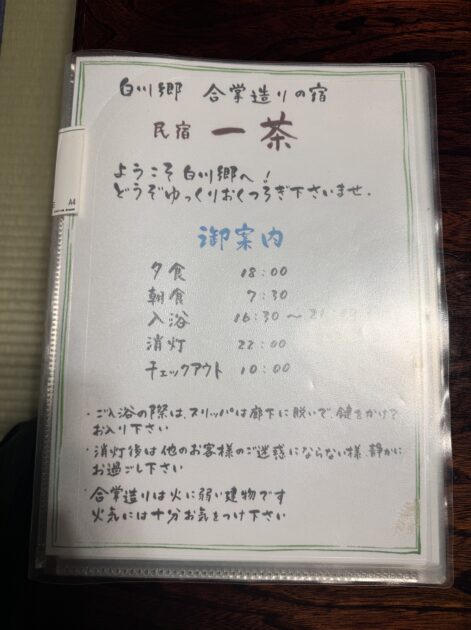 白川郷 合掌造りの宿
民宿 一茶
ようこそ白川郷へ!
どうぞゆっくりおくつろぎ下さいませ.
A4
御案内
夕食 18:00
朝食 7:30
入浴 16:30 〜 21:
消灯 22:00
チェックアウト 10:00
・ご入浴の際は、スリッパは廊下に脱いで、鍵をかけて
お入り下さい
・消灯後は他のお客様のご迷惑にならない様、静かに
お過ごし下さい
・合掌造りは火に弱い建物です
火気には十分お気をつけ下さい